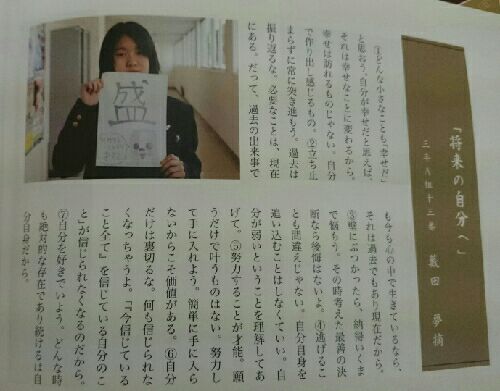 「将来の自分へ」
三年A組十三番 薮田 夢摘
①どんな小さなことも〝幸せだ〟
と思おう。自分が幸せだと思えば、
それは幸せなことに変わるから。
幸せは訪れるものじゃない。自分
で作り出し感じるもの。②立ち止
まらずに常に突き進もう。過去は
振り返るな。必要なことは、現在
にある。だって、過去の出来事で
も今も心の中で生きているなら、
それは過去でもあり現在だから。
③壁にぶつかったら、納得いくま
で悩もう。その時考えた最善の決
断なら後悔はないよ。④逃げるこ
とも間違えじゃない。自分自身を
追い込むことはしなくていい。自
分が弱いということを理解してあ
げて。⑤努力することが才能。願
うだけで叶うものはない。努力し
て手に入れよう。簡単に手に入ら
ないからこそ価値がある。⑥自分
だけは裏切るな。何も信じられな
くなっちゃうよ。『〝今信じている
こと全て〟を信じている自分のこ
と』が信じられなくなるのだから。
⑦自分を好きでいよう。どんな時
も絶対的な存在であり続けるは自
分自身だから。
盛